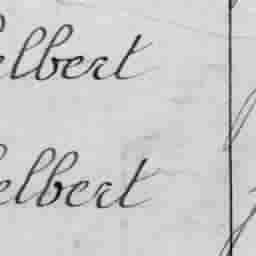 elbert
elbert